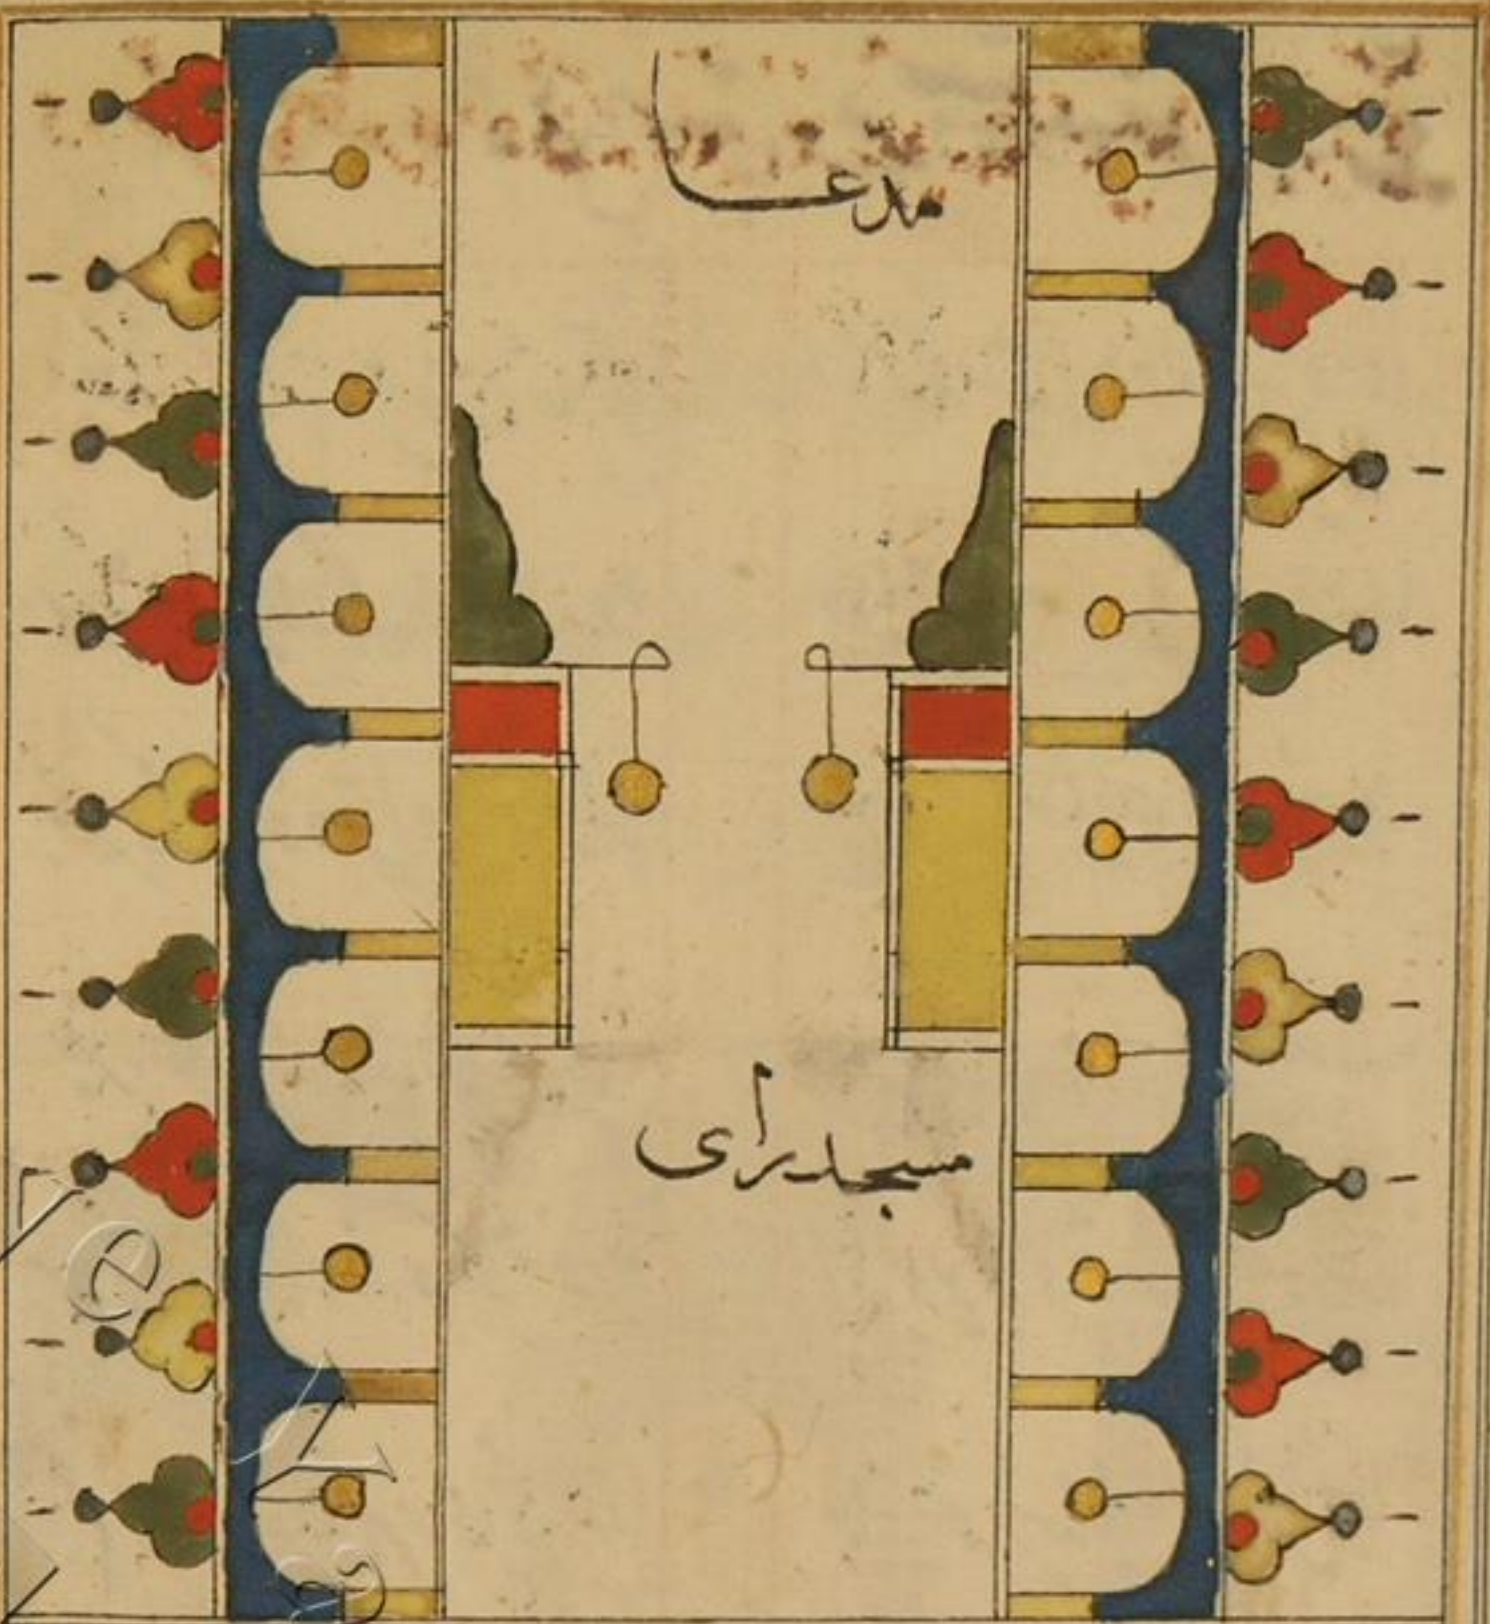 مدعا
مسجد رای